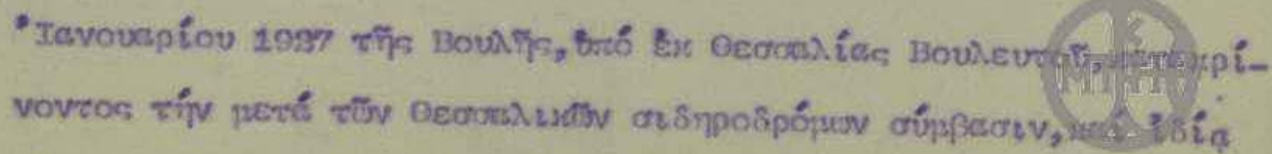 Ἰανουαρίου 1927 τῆς Βουλῆς, ὑπό ἐκ Θεσσαλίας Βουλευτοῦ, κατακρί-
νοντος τήν μετά τῶν Θεσσαλικῶν σιδηροδρόμων σύμβασιν, καί ἰδίᾳ